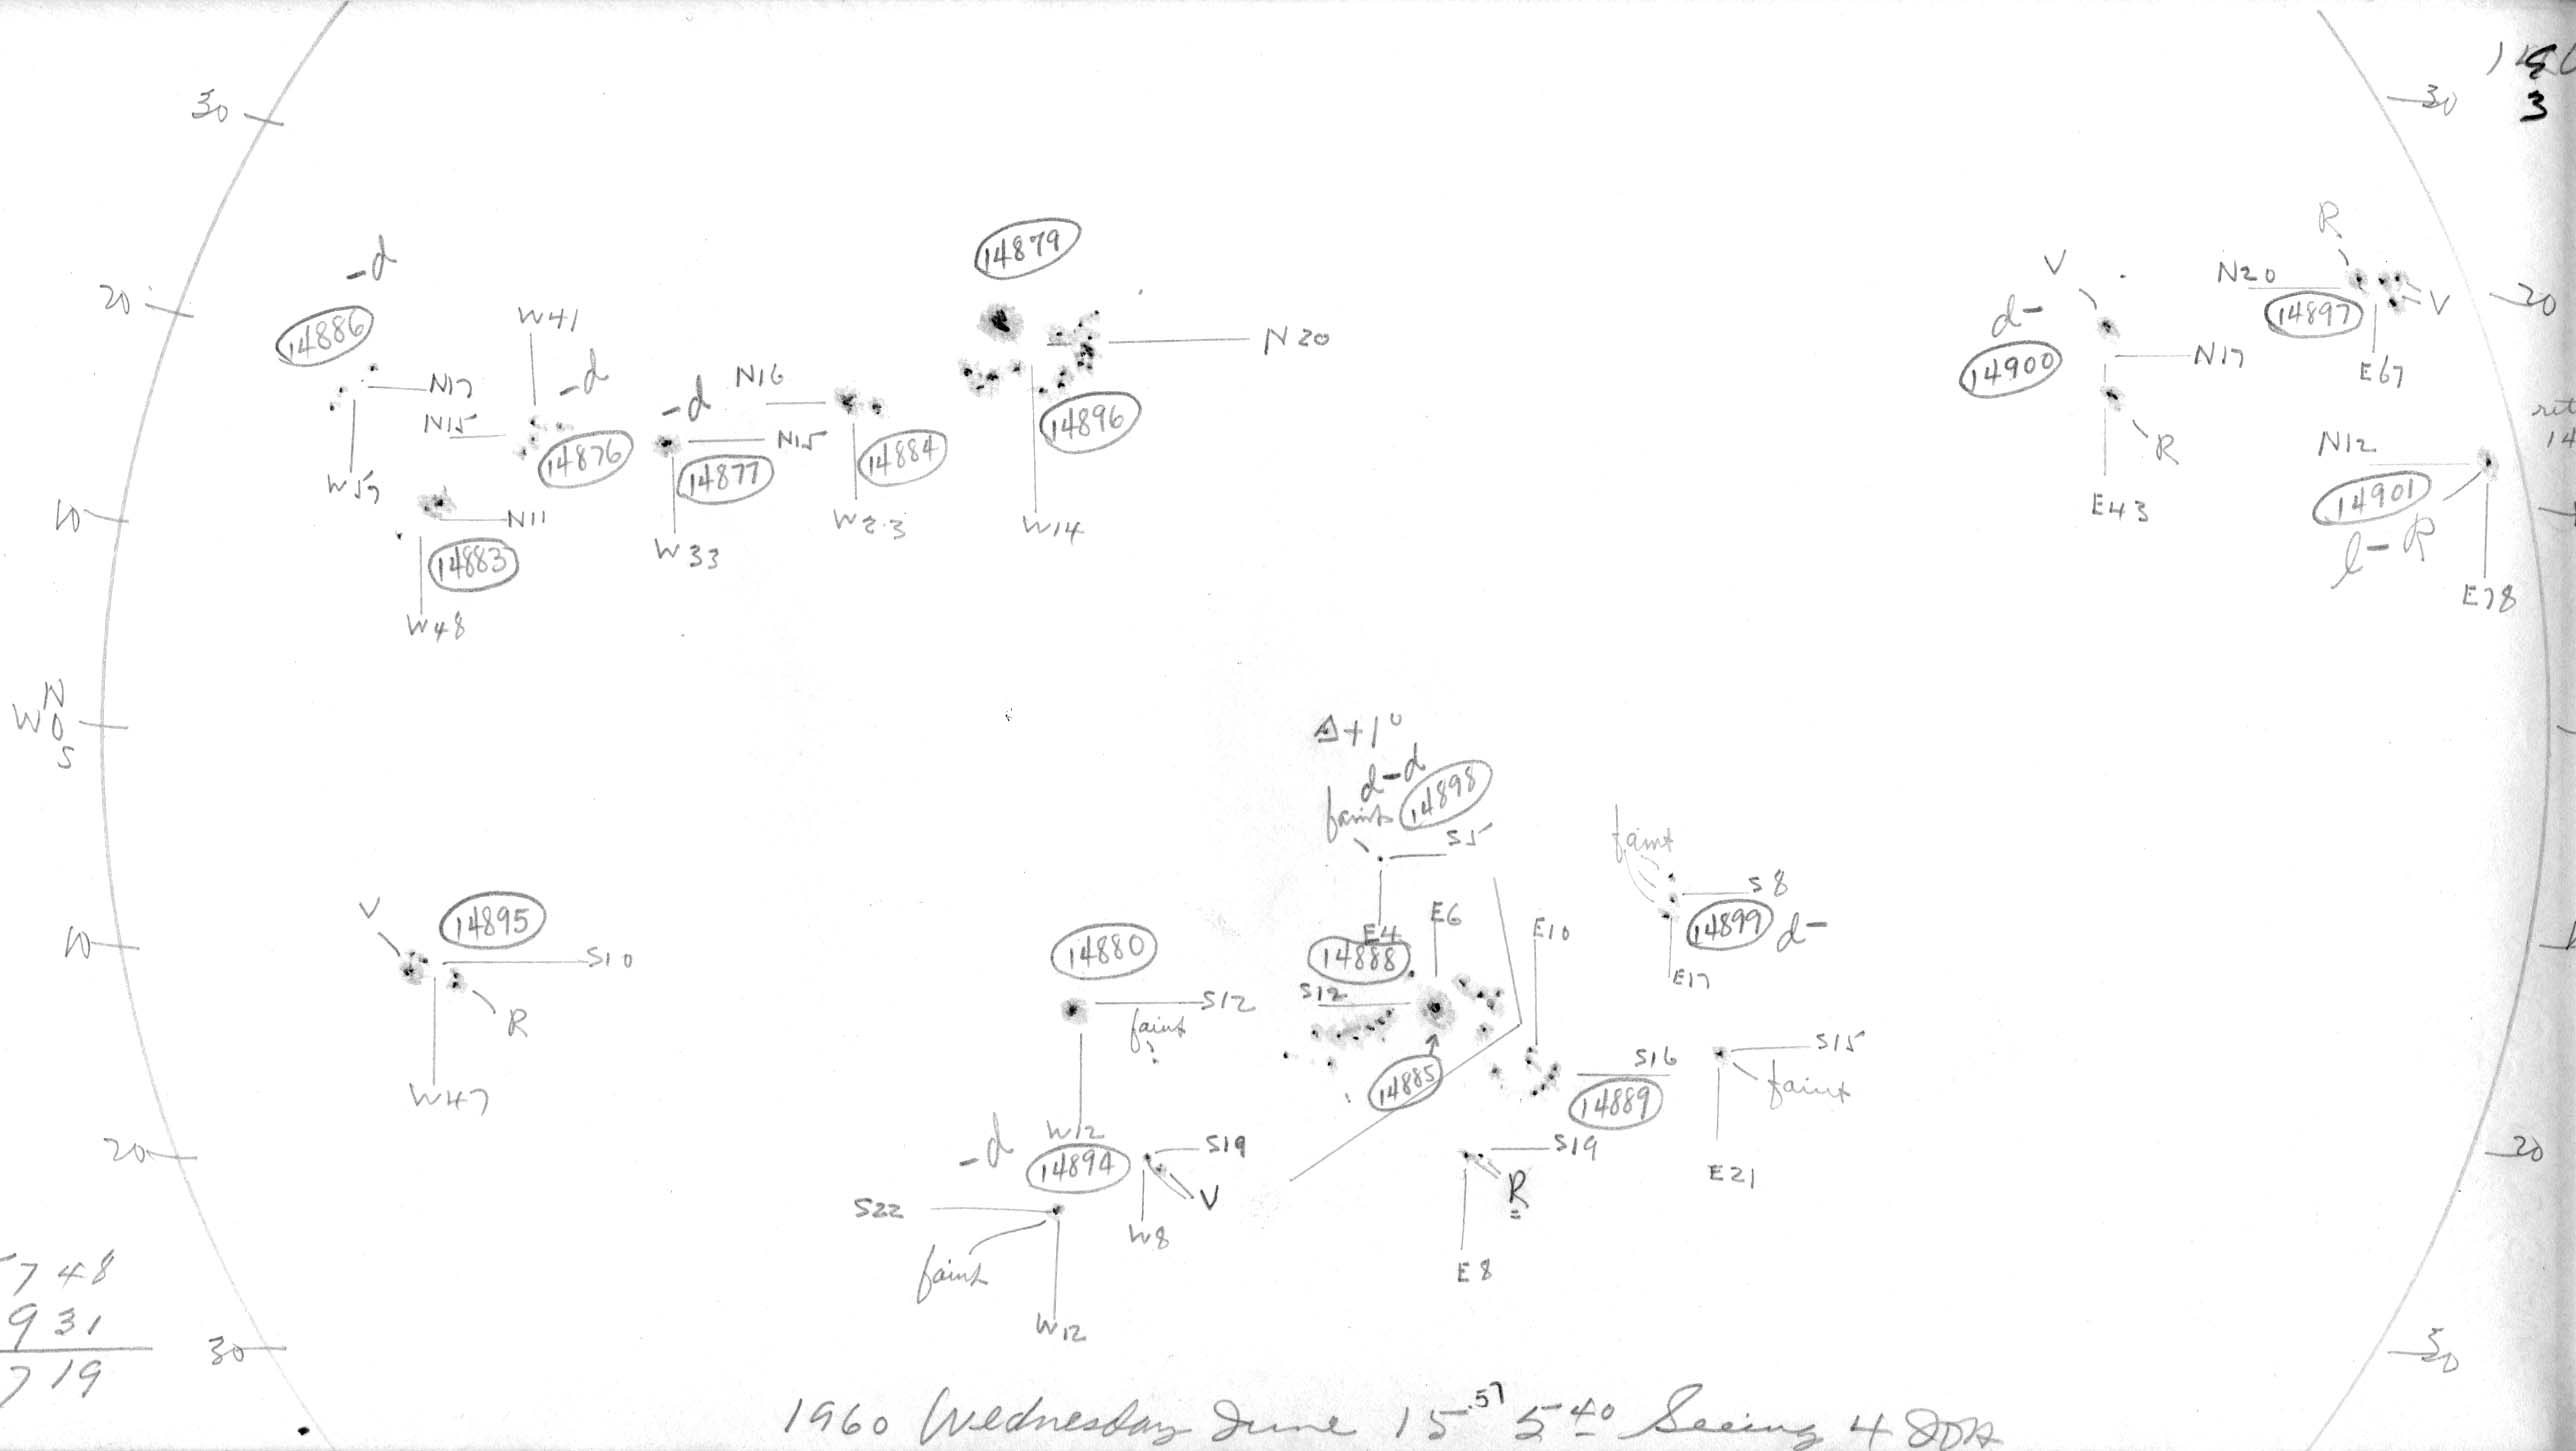 30
30
3
R
14879
V
N20
20
-d
20
d-
14897
V
14886
W41
N20
N17
14900
E67
-d
N16
N17
-d
14896
N15
N15
N12
R
14876
14884
14877
W57
14901
10
N11
W23
W14
E43
l-R
W33
14883
E78
W48
N
W0
S
Δ+1°
d-d
14898
faint
S5
faint
S8
V
14895
E6
14899
d-
E4
E10
10
14880
14888
S10
E17
S12
S12
faint
R
S15
S16
14885
faint
W47
14889
W12
-d
S19
S19
20
20
14894
E21
V
R
S22
W8
748
faint
E8
931
W12
30
30
719
1960 Wednesday June 15.57 5 40 Seeing 4